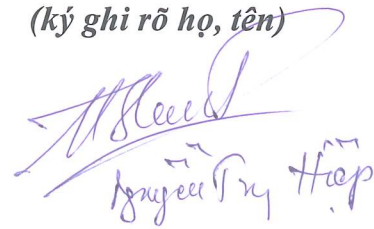 (ký ghi rõ họ, tên)
Nguyễn Hiệp